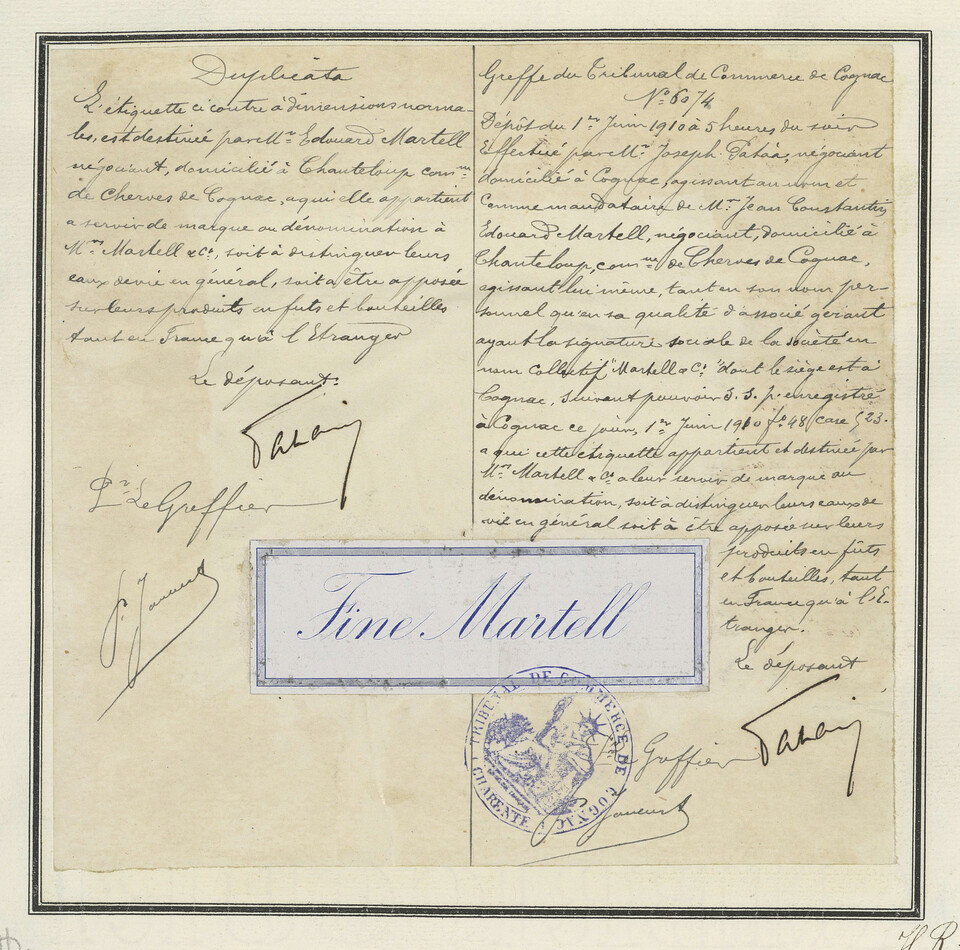 Duplicata
L'étiquette ci contre à dimensions norma-
les, est destinée par Mr Edouard Martell
négociant, domicilié à Chanteloup comne
de Cherves de Cognac, a qui elle appartient
a servir de marque ou dénomination à
Mrs Martell & Co, soit à distinguer leurs
eaux de vie en général, soit a être apposée
sur leurs produits en futs et bouteilles
tant en France qu'à l'Etranger
Le déposant:
Pr Le Greffier
Greffe du Tribunal de Commerce de Cognac
No 6074
Dépôt du 1er Juin 1910 à 5 heures du soir
Effectué par Mr Joseph négociant
domicilié à Cognac, agissant au nom et
comme mandataire de Mr Jean Constantin
Edouard Martell, négociant, domicilié à
Chanteloup, comne de Cherves de Cognac,
agissant lui même, tant en son nom per-
sonnel qu'en sa qualité d'associé gérant
ayant la signature sociale de la société en
nom collectif "Martell & Co" dont le siège est à
Cognac, suivant pouvoir S. S. p. enregistré
à Cognac ce jour, 1er Juin 1910 fo 48 case 523.
a qui cette étiquette appartient et destinée par
Mrs Martell & Co a leur servir de marque ou
dénomination, soit à distinguer leurs eaux de
vie en général soit à être apposée sur leurs
produits en fûts
et bouteilles, tant
en France qu'à l'E-
tranger.
Le déposant
Fine Martell
TRIBUNAL DE COMMERCE DE COGNAC
CHARENTE
Greffier
H R.